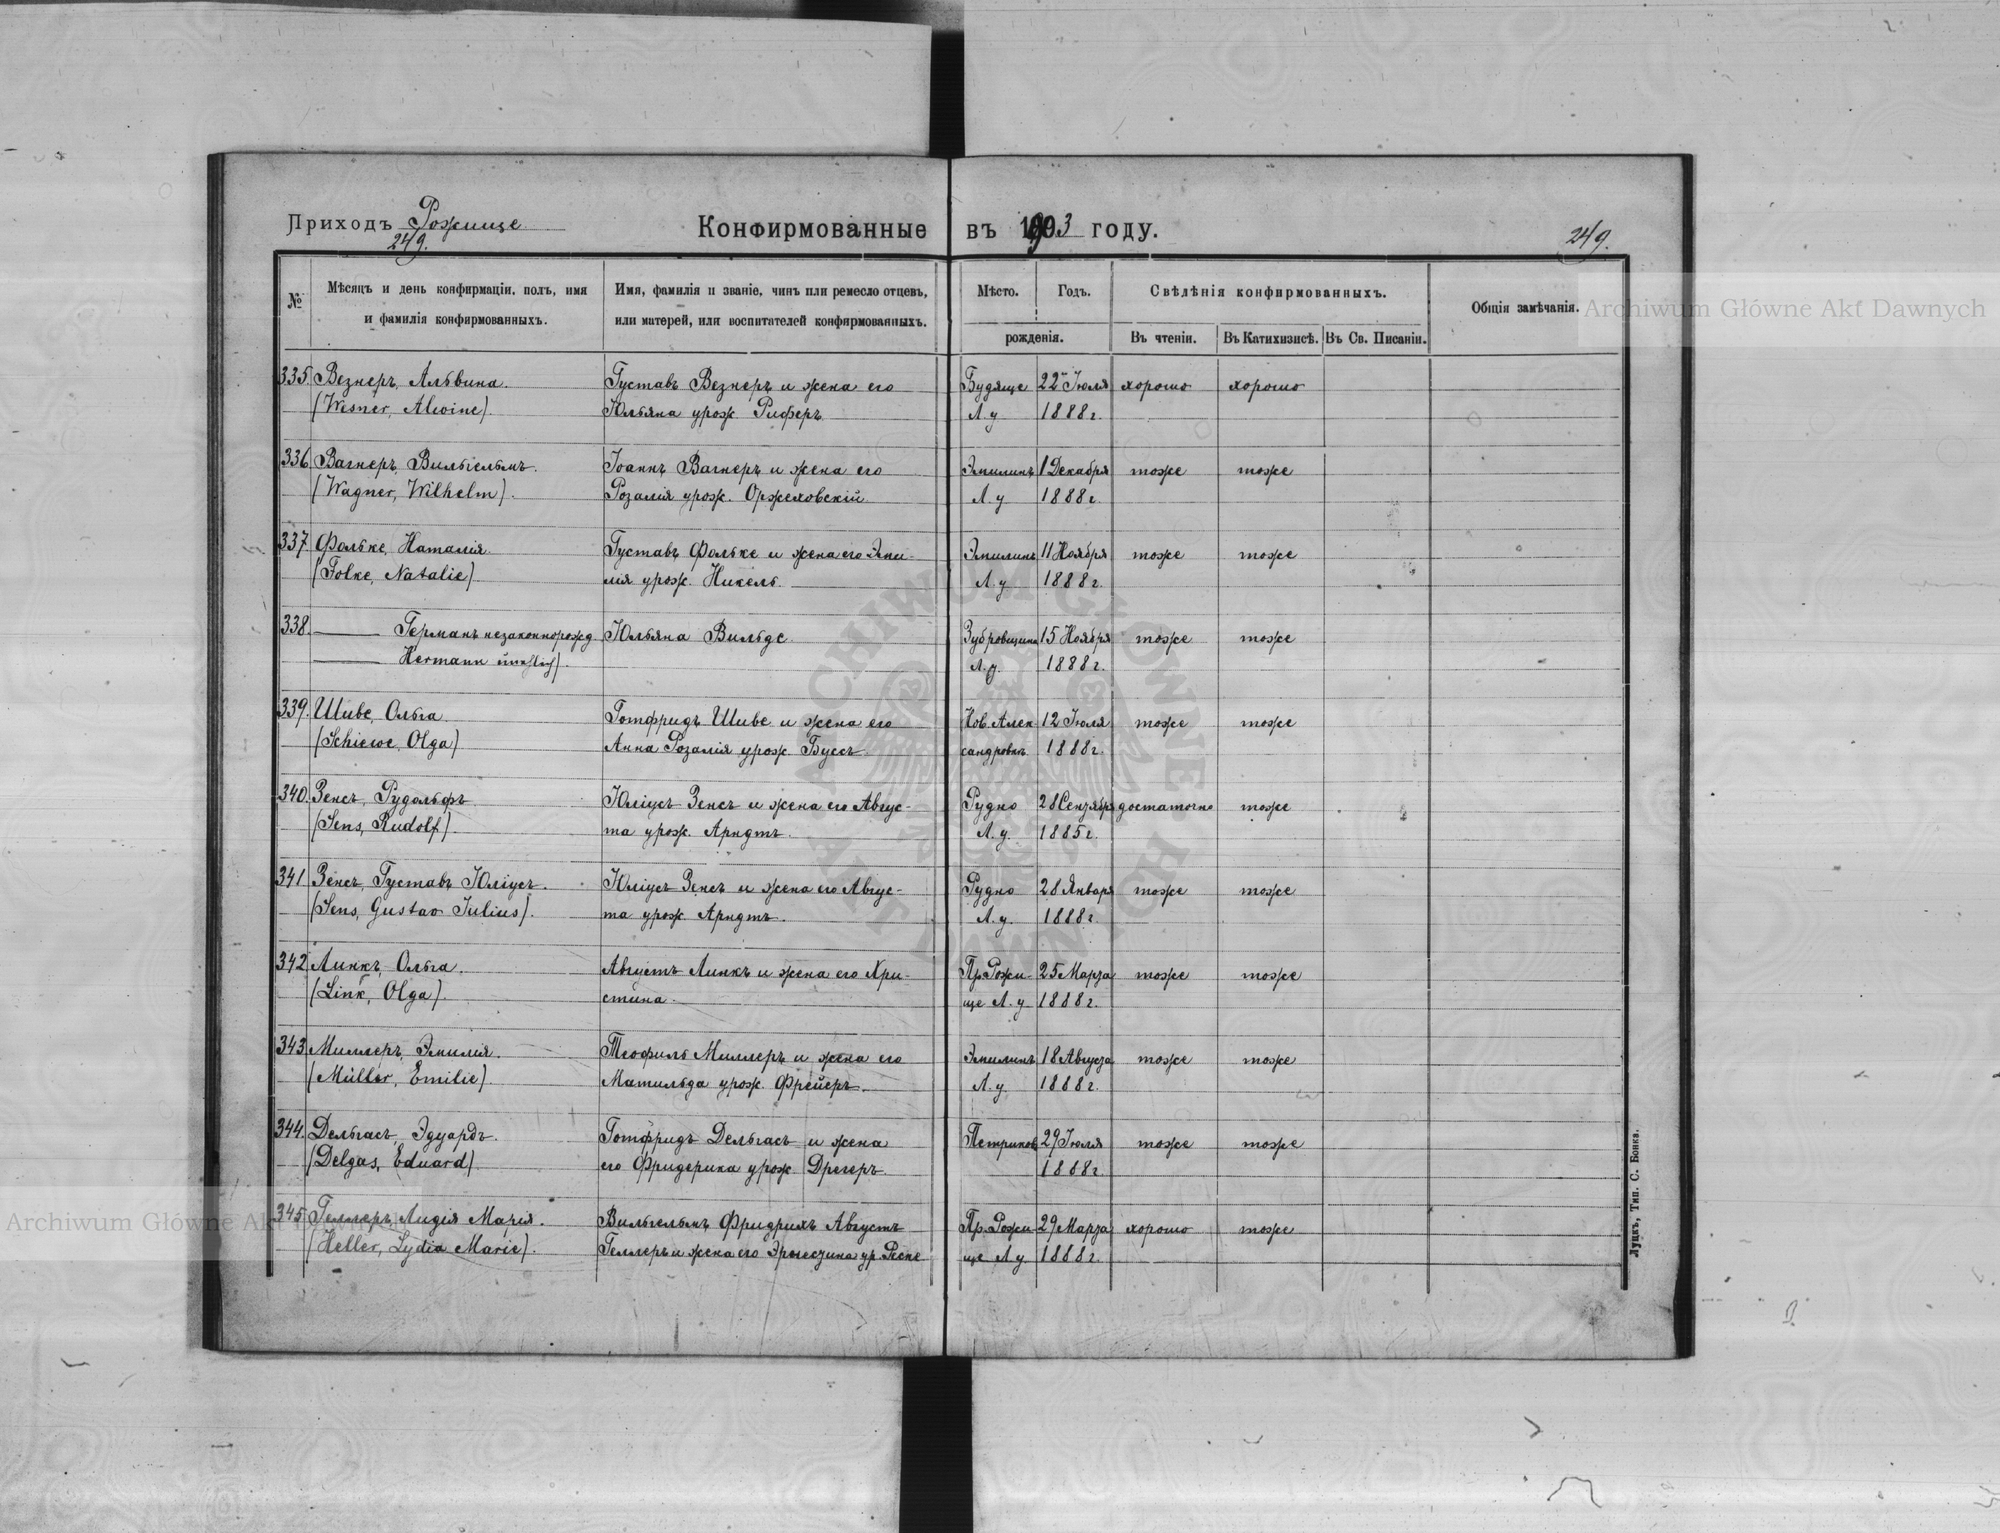 Приходъ Рожище
249.
Конфирмованные въ 1903 году.
249.
№
Мѣсяцъ и день конфирмаціи, полъ, имя
и фамилія конфирмованныхъ.
Имя, фамилія и званіе, чинъ или ремесло отцевъ,
или матерей, или воспитателей конфирмованныхъ.
Мѣсто.
Годъ.
рожденія.
Свѣдѣнія конфирмованныхъ.
Въ чтеніи.
Въ Катихизисѣ.
Въ Св. Писаніи.
Общія замѣчанія.
Archiwum Główne Akt Dawnych
335. Везнеръ, Альвина. Густавъ Везнеръ и жена его Будяще 22 Іюля хорошо хорошо
(Wesner, Alwine). Юльяна урож. Риферъ Л.у 1888г.
336. Вагнеръ, Вильгельмъ. Іоаннъ Вагнеръ и жена его Эмилинъ 1 Декабря тоже тоже
(Wagner, Wilhelm). Розалія урож. Оржеховскій Л.у 1888г.
337. Фольке, Наталія. Густавъ Фольке и жена его Эми- Эмилинъ 11 Ноября тоже тоже
(Folke, Natalie). лія урож. Никель. Л.у. 1888г.
338. — Германъ незаконнорожд. Юльяна Вильде. Зубровщина 15 Ноября тоже тоже
— Hermann unehlich). Л.у. 1888г.
339. Шиве, Ольга. Готфридъ Шиве и жена его Нов. Алек 12 Іюля тоже тоже
(Schiewe, Olga) Анна Розалія урож. Буссъ. сандровкѣ 1888г.
340. Зенсъ, Рудольфъ Юліусъ Зенсъ и жена его Авгус- Рудно 28 Сентября достаточно тоже
(Sens, Rudolf). та урож. Арндтъ. Л.у. 1885г.
341. Зенсъ, Густавъ Юліусъ. Юліусъ Зенсъ и жена его Авгус- Рудно 28 Января тоже тоже
(Sens, Gustav Julius). та урож. Арндтъ. Л.у. 1888г.
342. Линкъ, Ольга. Августъ Линкъ и жена его Хри- Пр. Рожи- 25 Марта тоже тоже
(Link, Olga). стина. ще Л.у 1888г.
343. Миллеръ, Эмилія. Теофиль Миллеръ и жена его Эмилинъ 18 Августа тоже тоже
(Müller, Emilie). Матильда урож. Фрейеръ. Л.у. 1888г.
344. Дельгасъ, Эдуардъ. Готфридъ Дельгасъ и жена Петриков 29 Іюля тоже тоже
(Delgas, Eduard). его Фридерика урож. Дрегеръ. 1888г.
345. Геллеръ, Лидія Марія. Вильгельмъ Фридрихъ Августъ Пр. Рожи- 29 Марта хорошо тоже
(Heller, Lydia Marie). Геллеръ и жена его Эрнестина ур. Реске ще Л.у. 1888г.
Луцкъ, Тип. С. Бонка.
Archiwum Główne Akt Dawnych
ARCHIWUM GŁÓWNE AKT DAWNYCH